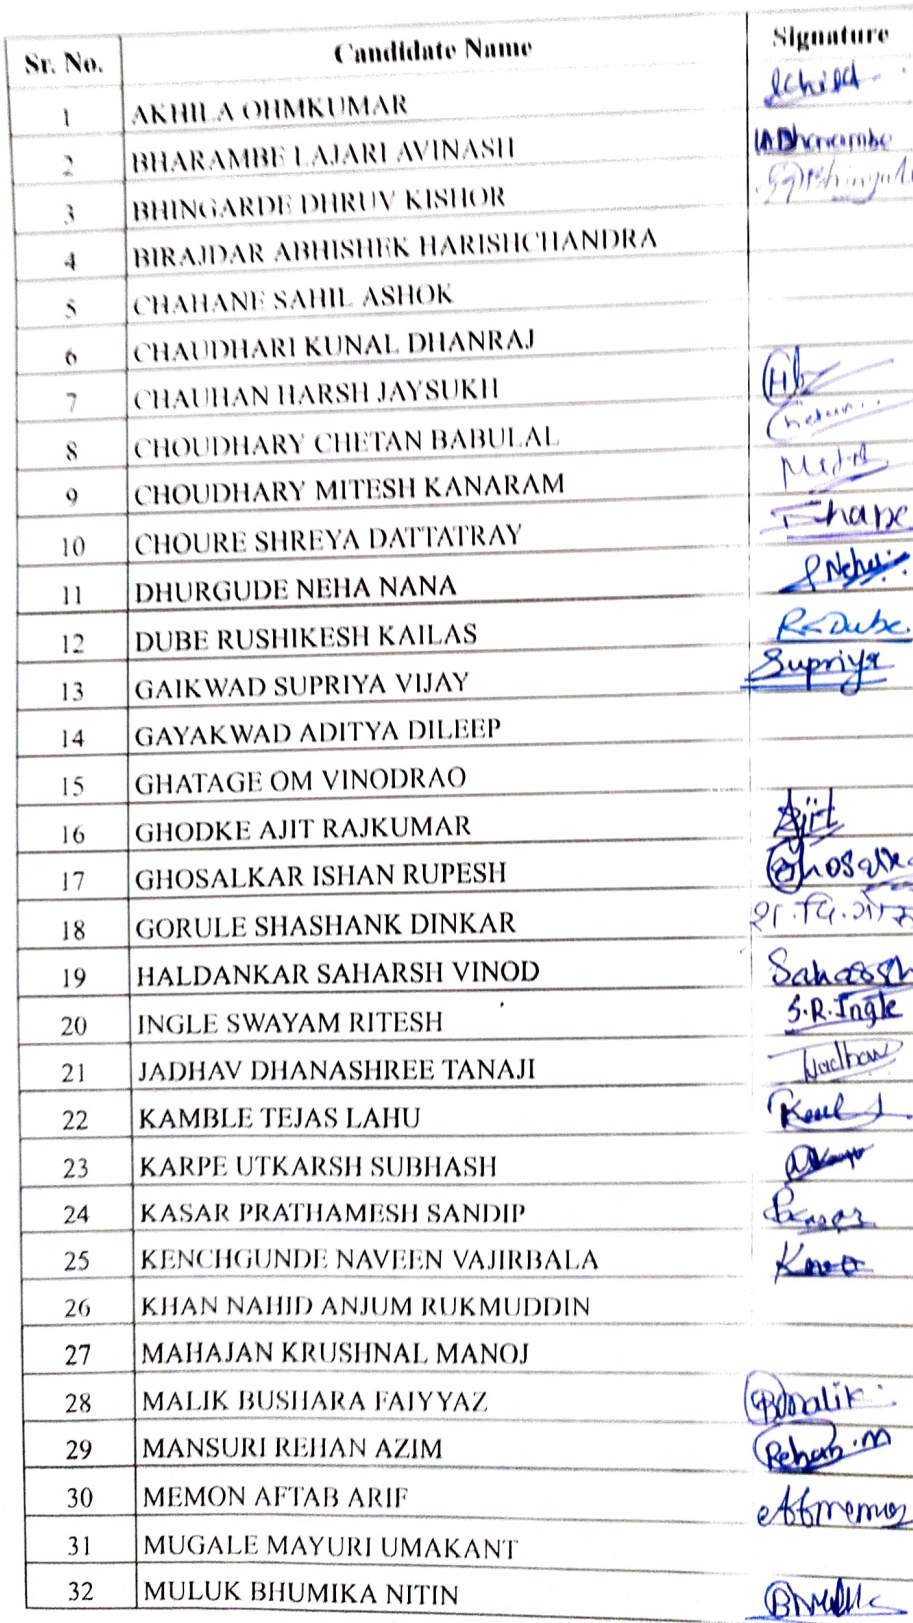 Sr. No. Candidate Name Signature
1 AKHILA OHMKUMAR
2 BHARAMBE LAJARI AVINASH
3 BHINGARDE DHRUV KISHOR
4 BIRAJDAR ABHISHEK HARISHCHANDRA
5 CHAHANE SAHIL ASHOK
6 CHAUDHARI KUNAL DHANRAJ
7 CHAUHAN HARSH JAYSUKH
8 CHOUDHARY CHETAN BABULAL Chetan..
9 CHOUDHARY MITESH KANARAM
10 CHOURE SHREYA DATTATRAY
11 DHURGUDE NEHA NANA
12 DUBE RUSHIKESH KAILAS RKDube.
13 GAIKWAD SUPRIYA VIJAY Supriya
14 GAYAKWAD ADITYA DILEEP
15 GHATAGE OM VINODRAO
16 GHODKE AJIT RAJKUMAR Ajit
17 GHOSALKAR ISHAN RUPESH
18 GORULE SHASHANK DINKAR
19 HALDANKAR SAHARSH VINOD Saharsh
20 INGLE SWAYAM RITESH S.R.Ingle
21 JADHAV DHANASHREE TANAJI
22 KAMBLE TEJAS LAHU
23 KARPE UTKARSH SUBHASH
24 KASAR PRATHAMESH SANDIP
25 KENCHGUNDE NAVEEN VAJIRBALA
26 KHAN NAHID ANJUM RUKMUDDIN
27 MAHAJAN KRUSHNAL MANOJ
28 MALIK BUSHARA FAIYYAZ BMalik
29 MANSURI REHAN AZIM Rehan.M
30 MEMON AFTAB ARIF
31 MUGALE MAYURI UMAKANT
32 MULUK BHUMIKA NITIN